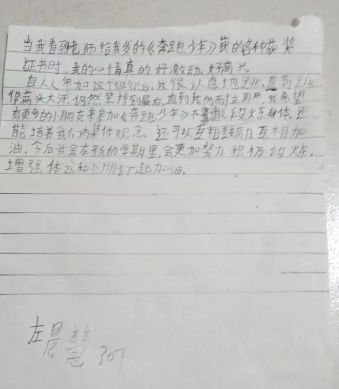 当我看到老师给我乡的《奔跑少年》获的各种获奖
证书时，我的心情真的好激动，好高兴
自人人参加这个组织后，我很认真地完成
满头大汗，仍然坚持到最后，直到我，我希望
有更多的小朋友来参加《奔跑少年》不能锻炼身体，还
能培养我们的集体观念，还可以互相鼓励，互相加
油，今后我会在新的学期里，会更加努力积极锻炼，
增强体和小朋们一起加油。
左晨慧 307